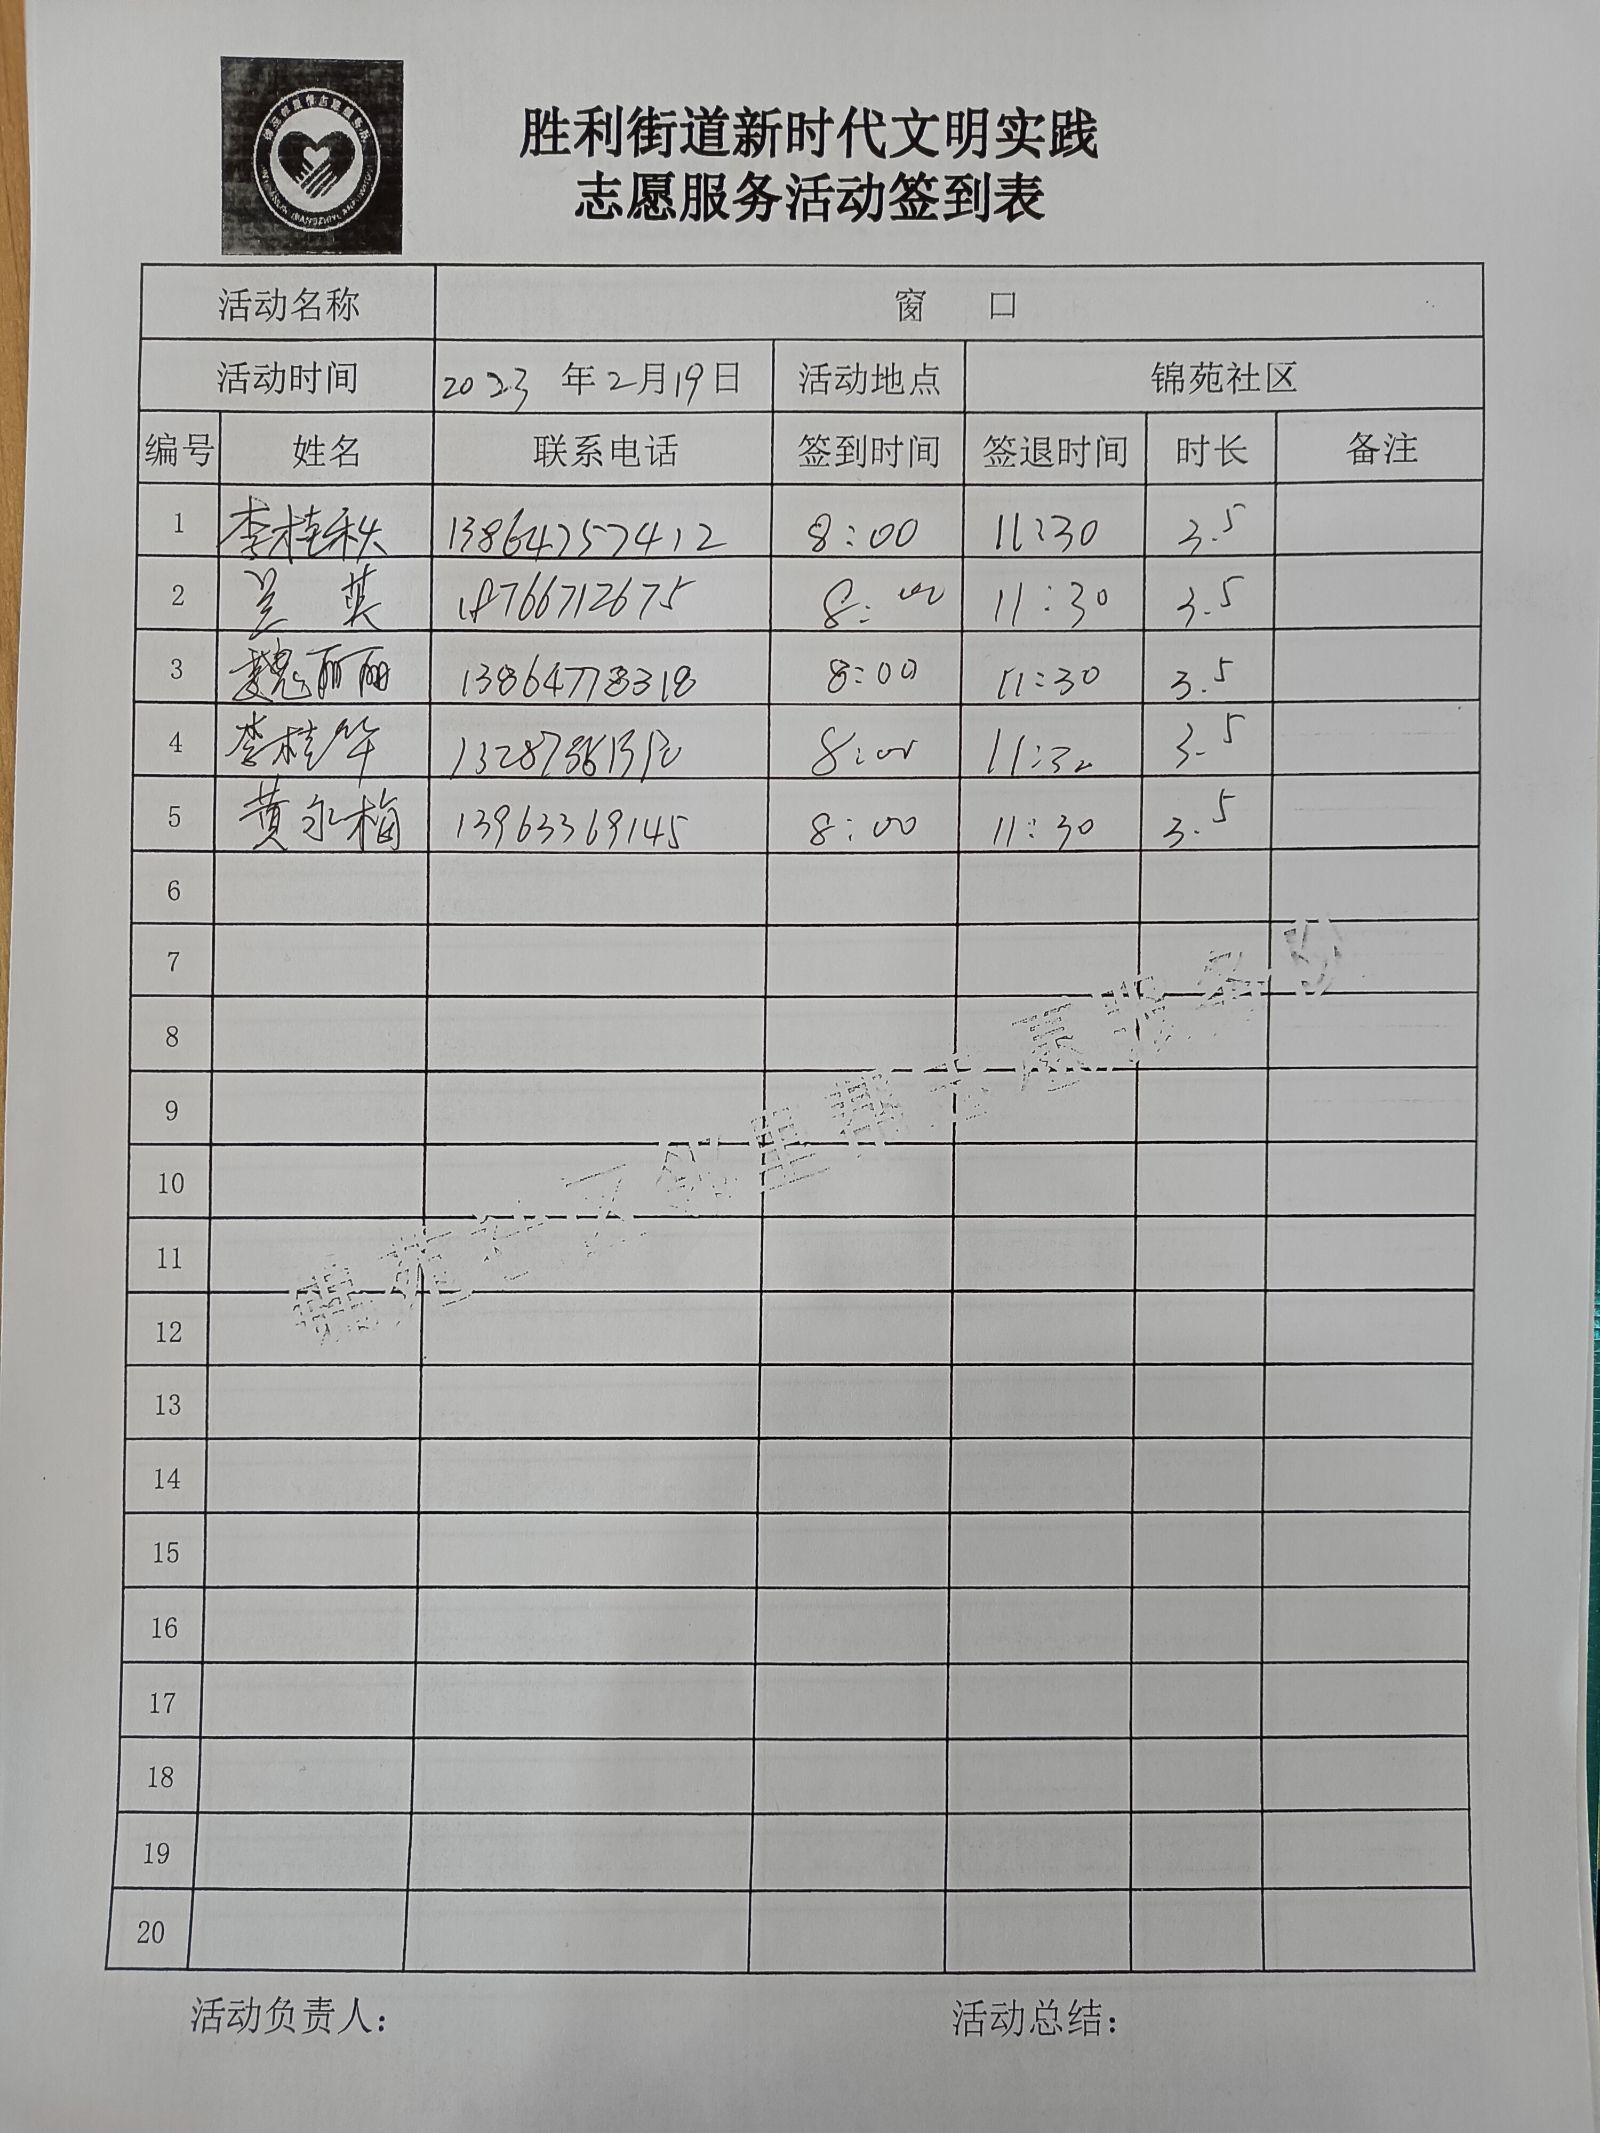 胜利街道新时代文明实践
志愿服务活动签到表
活动名称 窗 口
活动时间 2023 年 2 月 19 日 活动地点 锦苑社区
编号 姓名 联系电话 签到时间 签退时间 时长 备注
1 李桂秋 13864757412 8:00 11:30 3.5
2 兰英 18766712675 8:00 11:30 3.5
3 魏丽丽 13864778318 8:00 11:30 3.5
4 李桂华 8:00 11:30 3.5
5 黄永梅 13963369145 8:00 11:30 3.5
6
7
8
9
10
11
12
13
14
15
16
17
18
19
20
锦苑社区邻里帮志愿服务队
活动负责人： 活动总结：